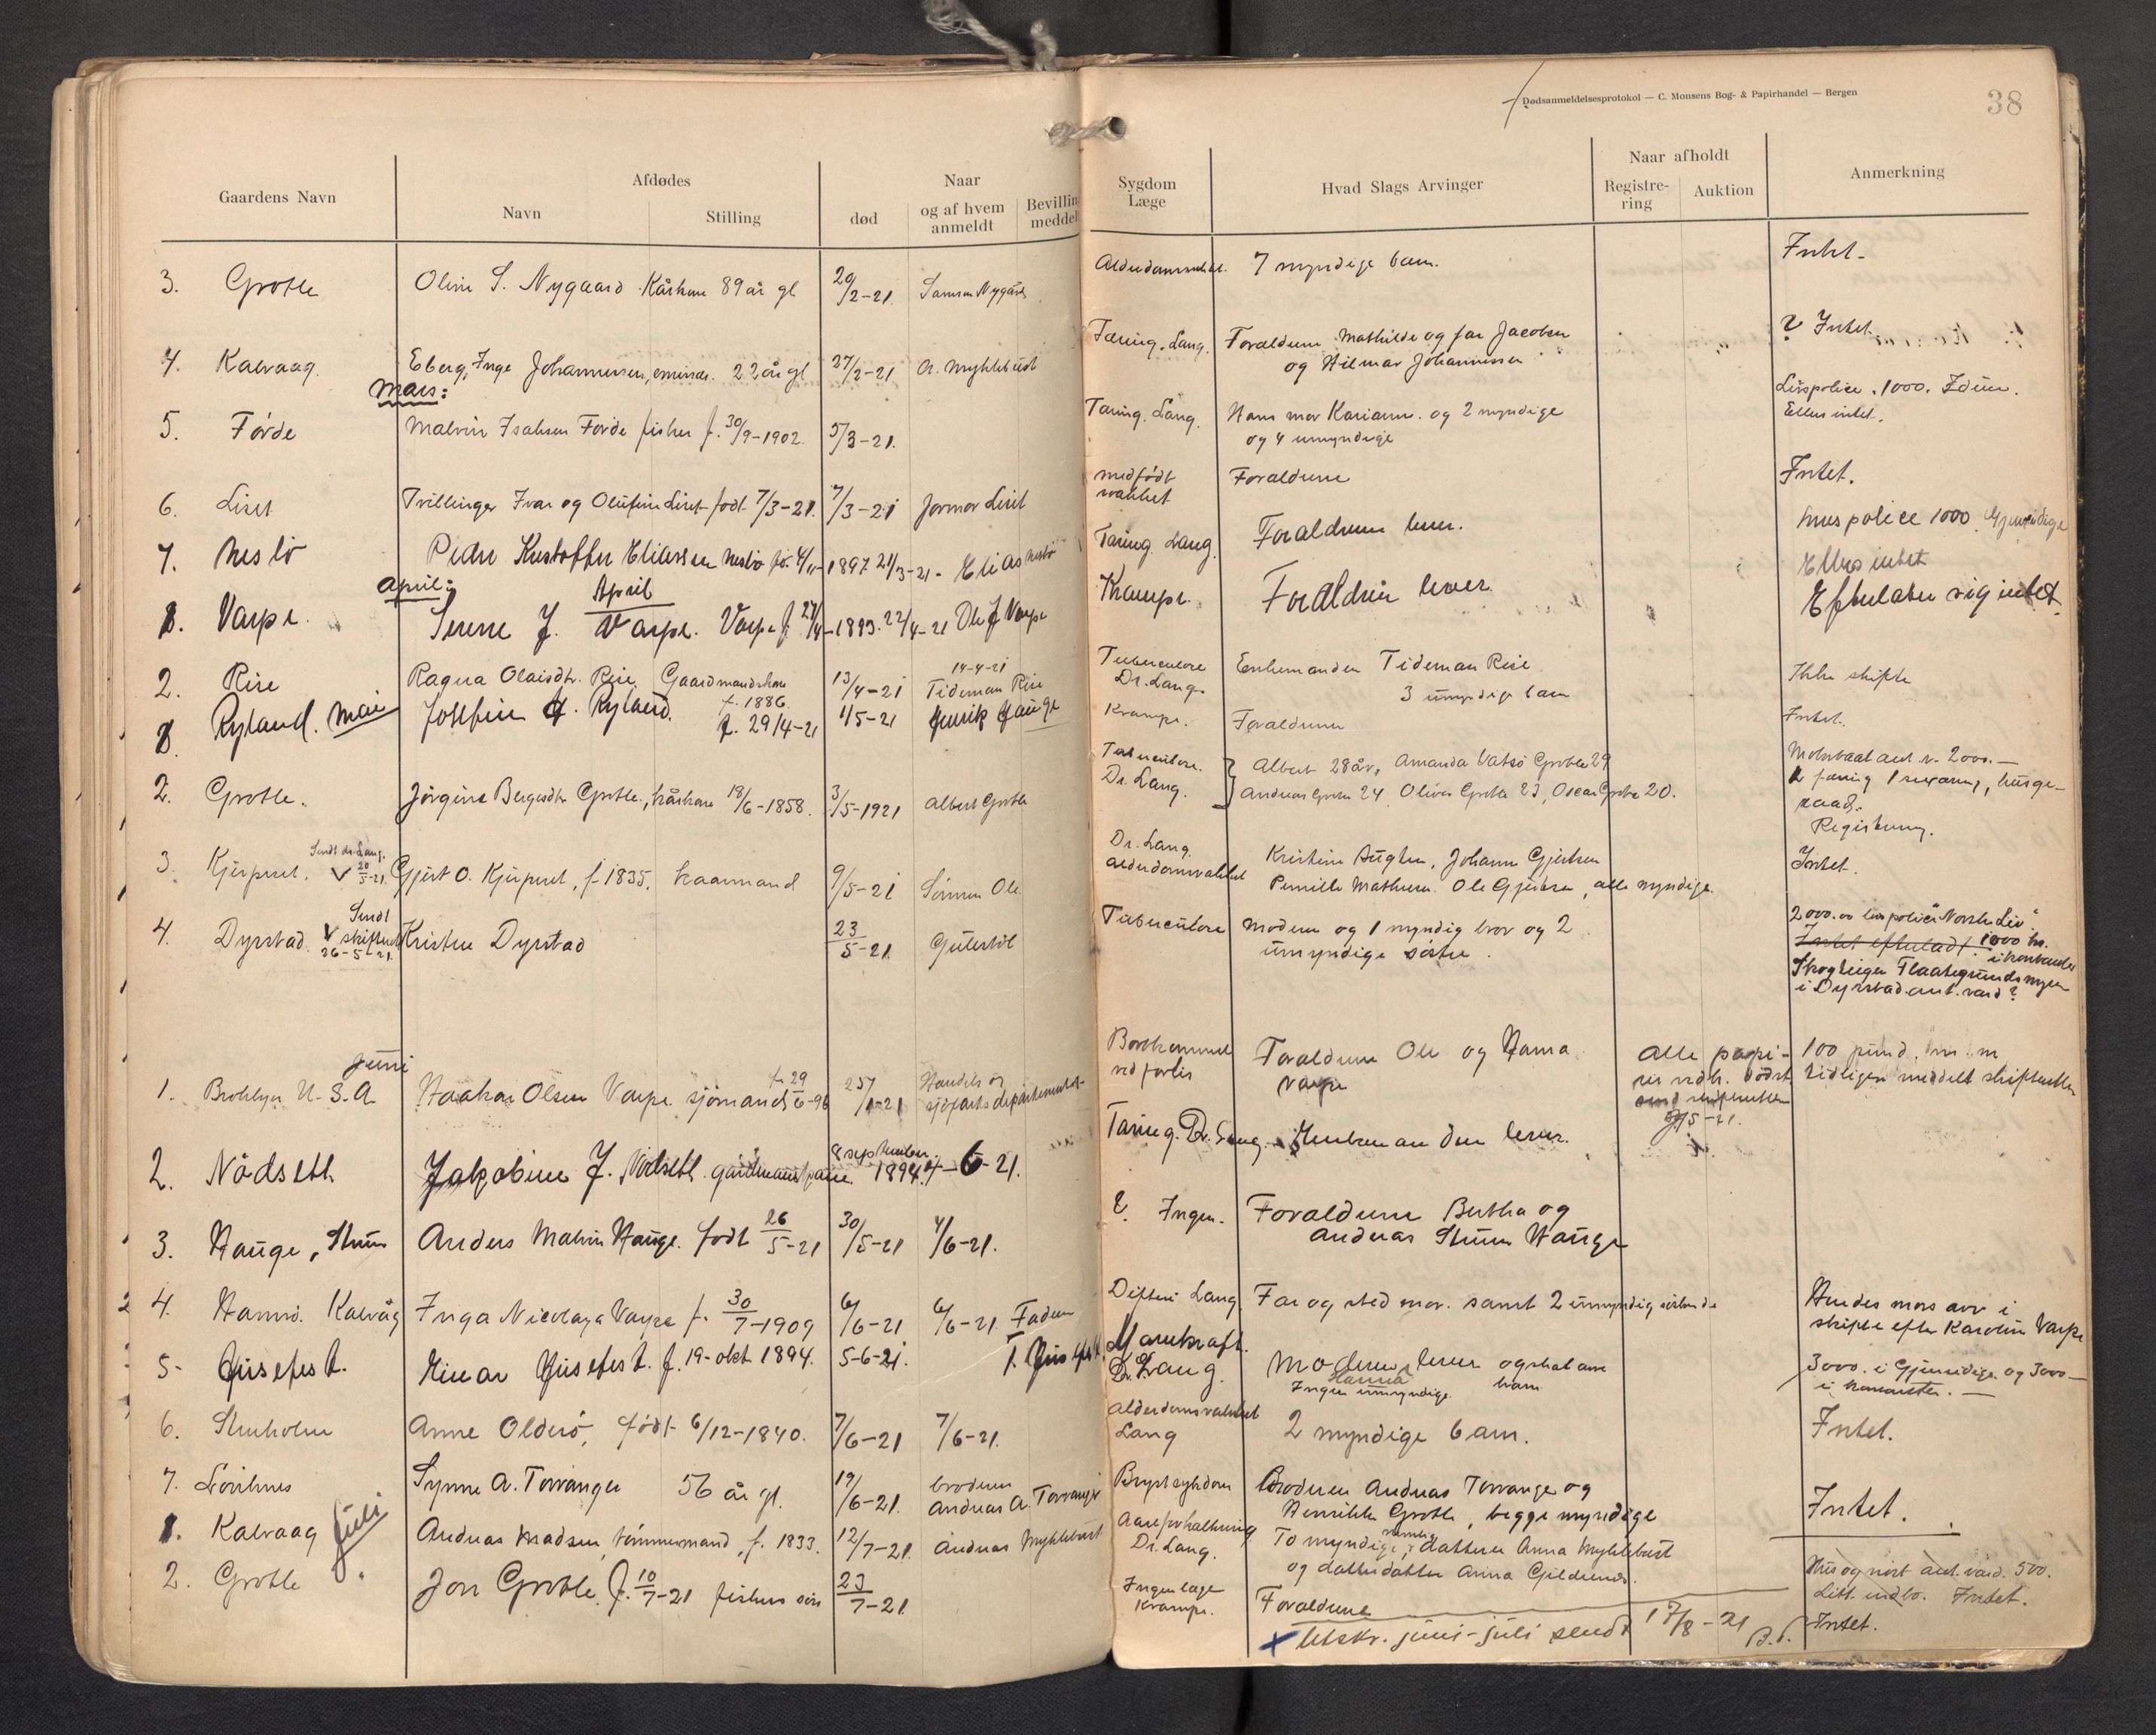 Dødsanmeldelsesprotokol — C. Monsens Bog- & Papirhandel — Bergen
38
Gaardens Navn
Afdødes
Navn
Stilling
Naar
død
og af hvem anmeldt
Bevilling meddelt
Sygdom
Læge
Hvad Slags Arvinger
Naar afholdt
Registre-
ring
Auktion
Anmerkning
3. Grotle Oline S. Nygaard Kårkone 89 år gl 20/2-21 Samson Nygård 7 myndige barn. Intet.
4. Kalvaag. Eberg Inge Johannessen, 22 år gl 27/2-21 A. Myklebust Tæring. Lang. Forældrene Mathilde og far Jacobsen
og Hilmar Johannessen ? Intet.
Mars:
5. Førde Malvin Isaksen Førde fisker f. 30/9-1902. 5/3-21. Tæring. Lang. Hans mor Karianne og 2 myndige
og 4 umyndige Livspolice 1000. Idun.
Ellers intet.
6. Liset Tvillinger Ivar og Olufine Liset født 7/3-21. 7/3-21 Jormor Liset medfødt
svakhet Forældrene Intet.
7. Neslø Peder Kristoffer Eliassen Neslø fø. 4/11-1897 21/3-21. Elias Neslø Tæring Lang Forældrene lever. Livspolice 1000 Gjensidige
Ellers intet
April:
April
1. Varpe. Serine J. Varpe. Varpe f. 27/4-1893. 22/4-21 Ole J Varpe Krampe. Forældrene lever Efterlater sig intet.
2. Rise Ragna Olaisdtr. Rise. Gaardmandskone
f. 1886. 13/4-21 14-4-21
Tideman Rise Tuberculose
Dr. Lang. Enkemanden Tideman Rise
3 umyndige barn Ikke skifte
Mai
1. Ryland. Josefine H. Ryland. f. 29/4-21 1/5-21 Henrik Hauge Krampe. Forældrene Intet.
2. Grotle. Jørgine Bergesdtr Grotle, kårkone 18/6-1858. 3/5-1921 Albert Grotle Tuberculose.
Dr. Lang. Albert 28 år, Amanda Vatsø Grotle 29
Andreas Grotle 24, Oliver Grotle 23, Oscar Grotle 20. Motorbaat ant. v. 2000.—
1 færing 1 sexæring, husge-
raad.
Registrering.
3. Sendt dr. Lang.
20/5-21. Gjert O. f. 1835. kaarmand 9/5-21 Sønnen Ole Dr. Lang.
Alderdomsvakhet Kristine Johanne Gjertsen
Pernille Mathisen. Ole Gjertsen, alle myndige. Intet.
4. Dyrstad. Sendt
skifteret
26-5-21. Kristen Dyrstad 23/5-21 Gulestøl Tuberculose Moderen og 1 myndig bror og 2
umyndige søstre. 2000.00 livspolice "Norske Liv"
Intet efterladt. 1000 kr.
i kontanter
Skogteigen
i Dyrstad ant. værd?
Juni
1. Brooklyn U.S.A Haakon Olsen Varpe sjømand f. 29/6-96 25/1-21 Handels og
sjøfartsdepartementet Bortkommet
ved forlis Forældrene Ole og Hanna
Varpe Alle papi-
rer vedk. dødsf.
send skifteretten
5-21. 100 pund. m.m
tidligere meddelt skifteretten
2. Nødseth Jakobine J. Nødseth gårdmannskone 8 september 1894. 4-6-21. Tæring. Dr. Lang. Enkemanden lever.
3. Hauge, Anders Malvin Hauge. født 26/5-21 30/5-21 4/6-21. ? Ingen. Forældrene Bertha og
Andreas Hauge
4. Kalvåg Inga Nicolaya Varpe f. 30/7-1909 6/6-21 6/6-21 Faderen Difteri Lang Far og stedmor. samt 2 umyndig søskende Hendes mors arv i
skifte efter Karoline Varpe
5. Husefest. Einar Husefest. f. 19-okt 1894. 5-6-21. T. Husefest. Mavekræft.
D. Lang. Moderen lever også et barn
Hanna
Ingen umyndige barn 3000. i Gjensidige og 3000—
i kontanter.—
6. Anne Olderø, født 6/12-1840. 7/6-21 7/6-21. Alderdomsvakhet
Lang 2 myndige barn. Intet.
7. Synne A. Torvanger 56 år gl. 19/6-21. broderen
Andreas A. Torvanger Brystsykdom Broderen Andreas Torvanger og
Henrikke Grotle, begge myndige Intet.
Juli
1. Kalvaag Andreas Madsen, tømmermand, f. 1833. 12/7-21. Andreas Myklebust Aareforkalkning
Dr. Lang. To myndige, nemlig datteren Anna Myklebust
og datterdatter Anna Hus og nøst ant. værd. 500.
Litt indbo. Intet.
2. Grotle Jon Grotle f. 10/7-21 fiskers søn 23/7-21 Ingen læge
Krampe. Forældrene Intet.
x Utskr. juni-juli sendt 17/8-21